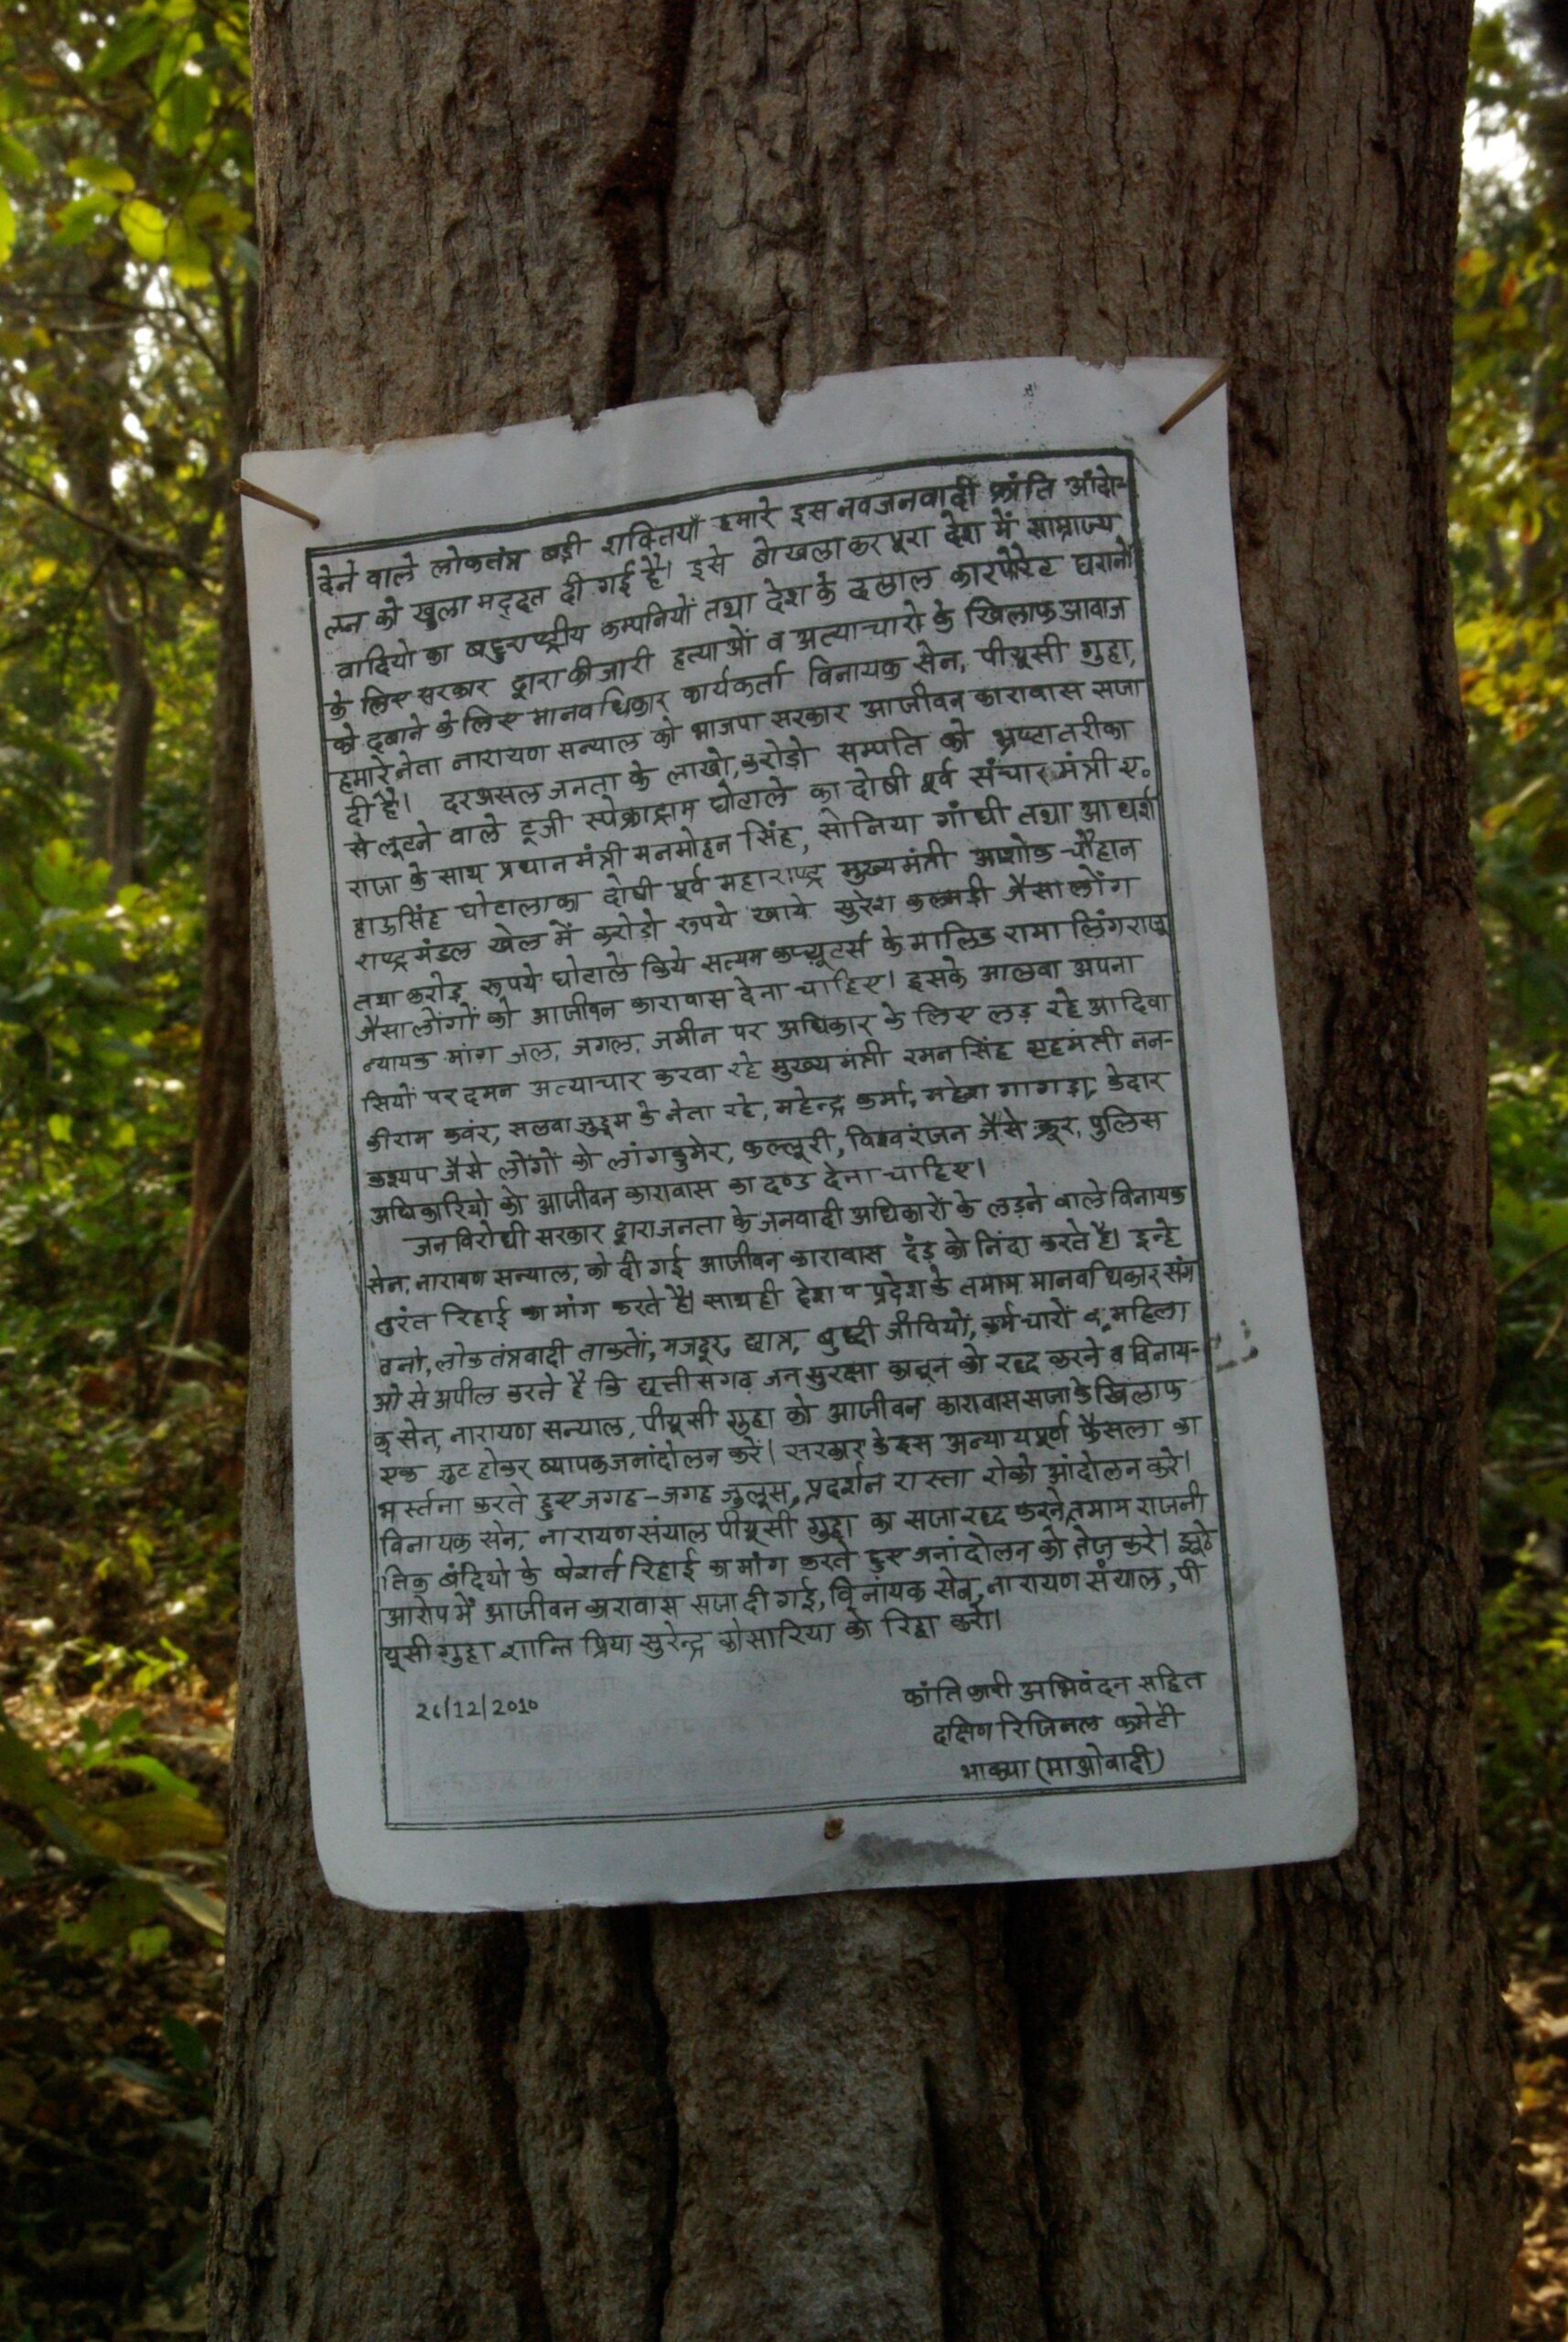 देने वाले लोकतंत्र बड़ी शक्तियाँ हमारे इस नवजनवादी क्रांति आंदो-
लन को खुला मद्दत दी गई है। इसे बोखलाकर पूरा देश में साम्राज्य
वादियो का बहुराष्ट्रीय कम्पनियों तथा देश के दलाल कारपोरेट घरानो
के लिए सरकार द्वारा की जारी हत्याओं व अत्याचारो के खिलाफ आवाज
को दबाने के लिए मानवधिकार कार्यकर्ता विनायक सेन, पीयूसी गुहा,
हमारे नेता नारायण सन्याल को भाजपा सरकार आजीवन कारावास सजा
दी है। दरअसल जनता के लाखो, करोडो सम्पति को भ्रष्टा तरीका
से लूटने वाले टूजी स्पेक्राट्राम घोटाले का दोषी पूर्व संचार मंत्री ए.
राजा के साथ प्रधानमंत्री मनमोहन सिंह, सोनिया गांधी तथा आधर्श
हाऊसिंह घोटाला का दोषी पूर्व महाराष्ट्र मुख्यमंत्री आशोक चौहान
राष्ट्रमंडल खेल में करोडो रूपये खाये सुरेश कलमाड़ी जैसा लोंग
तथा करोड़ रूपये घोटाले किये सत्यम कम्प्यूटर्स के मालिक रामा लिंगराजू
जैसा लोंगों को आजीवन कारावास देना चाहिए। इसके आलवा अपना
न्यायक मांग जल, जगल, जमीन पर अधिकार के लिए लड़ रहे आदिवा
सियों पर दमन अत्याचार करवा रहे मुख्य मंत्री रमन सिंह गृहमंत्री नन-
कीराम कवंर, सलवा जुडूम के नेता रहे, महेन्द्र कर्मा, महेश गागड़ा, केदार
कश्यप जैसे लोंगों को लांगकुमेर, कल्लूरी, विश्वरंजन जैसे क्रूर, पुलिस
अधिकारियो को आजीवन कारावास का दण्ड देना चाहिए।
जन विरोधी सरकार द्वारा जनता के जनवादी अधिकारों के लड़ने वाले विनायक
सेन, नारायण सन्याल, को दी गई आजीवन कारावास दंड़ को निंदा करते है। इन्हे
तुरंत रिहाई का मांग करते है। साथ ही देश व प्रदेश के तमाम मानवधिकार संग
ठनो, लोकतंत्रवादी ताकतों, मजदूर, छात्र, बुध्दी जीवियों, कर्मचारों व महिला
ओ से अपील करते है कि छत्तीसगढ़ जन सुरक्षा कानून को रद्द करने व विनाय-
क सेन, नारायण सन्याल, पीयूसी गुहा को आजीवन कारावास सजा के खिलाफ
एक जुट होकर व्यापक जनांदोलन करें। सरकार के इस अन्यायपूर्ण फैसला का
भर्स्तना करते हुए जगह-जगह जुलूस, प्रदर्शन रास्ता रोको आंदोलन करे।
विनायक सेन, नारायण संयाल पीयूसी गुहा का सजा रद्द करने, तमाम राजनी
तिक बंदियो के बेशर्त रिहाई का मांग करते हुए जनांदोलन को तेज करे। झूठे
आरोप में आजीवन कारावास सजा दी गई, विनायक सेन, नारायण संयाल, पी
यूसी गुहा शान्ति प्रिया सुरेन्द्र कोसारिया को रिहा करो।
26/12/2010
क्रांतिकारी अभिवंदन सहित
दक्षिण रिजिनल कमेटी
भाकपा (माओवादी)